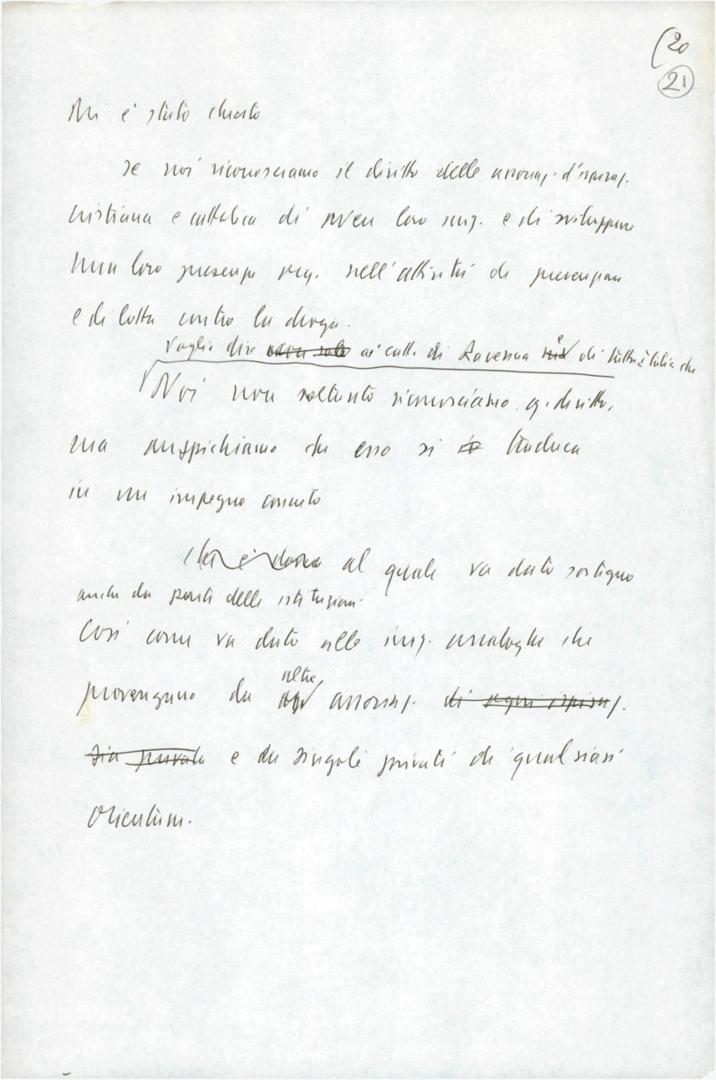 (20
21
Mi è stato chiesto
se noi riconosciamo il diritto delle associaz. d'ispiraz.
cristiana e cattolica di avere loro e di sviluppare
una loro presenza nell'attività di prevenzione
e di lotta contro la droga.
Voglio dire ai catt. di Ravenna e di tutta Italia che
Noi non soltanto riconosciamo q. diritto,
ma auspichiamo che esso si traduca
in un impegno concreto
al quale va dato sostegno
anche da parte delle istituzioni.
Così come va dato alle iniz. analoghe che
provengano da altre associaz. di ogni ispiraz.
sia privata e da singoli privati di qualsiasi
orientam.